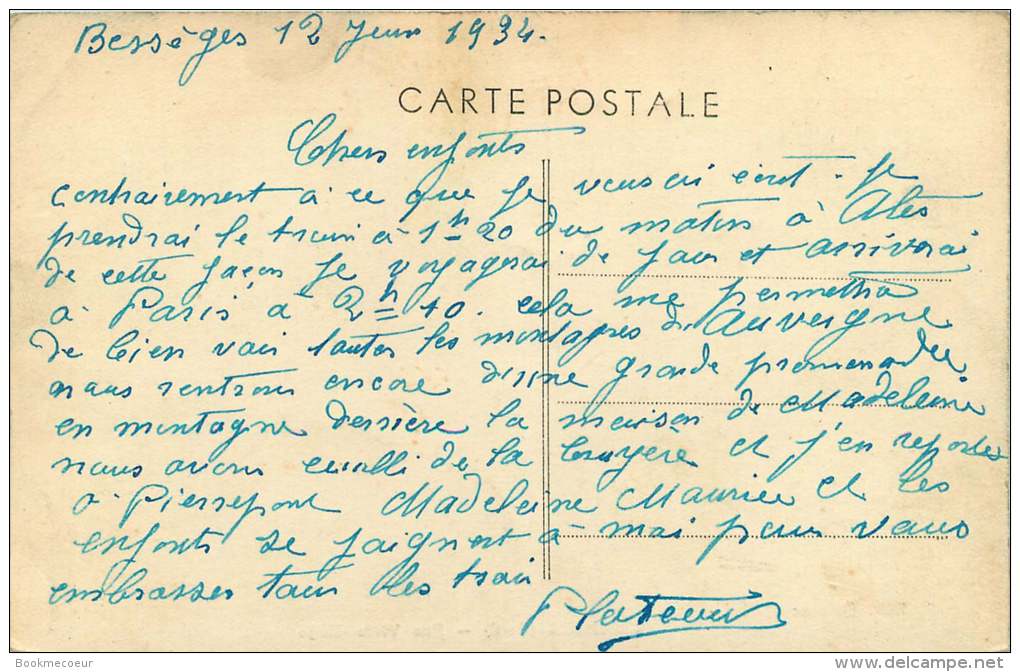 Bessèges 12 Juin 1934.
CARTE POSTALE
Chers enfants
contrairement à ce que je vous ai écrit - je
prendrai le train à 1h20 du matin à Alès
de cette façon je voyagerai de jour et arriverai
à Paris à 2h40. cela me permettra
de bien voir toutes les montagnes d'Auvergne
nous rentrons encore d'une grande promenade
en montagne derrière la maison de Madeleine
nous avons cueilli de la bruyère et j'en reportes
à Pierrepont Madeleine Maurice et les
enfants se joignent à moi pour vous
embrasser tous les trois
Bookmecoeur
www.delcampe.net